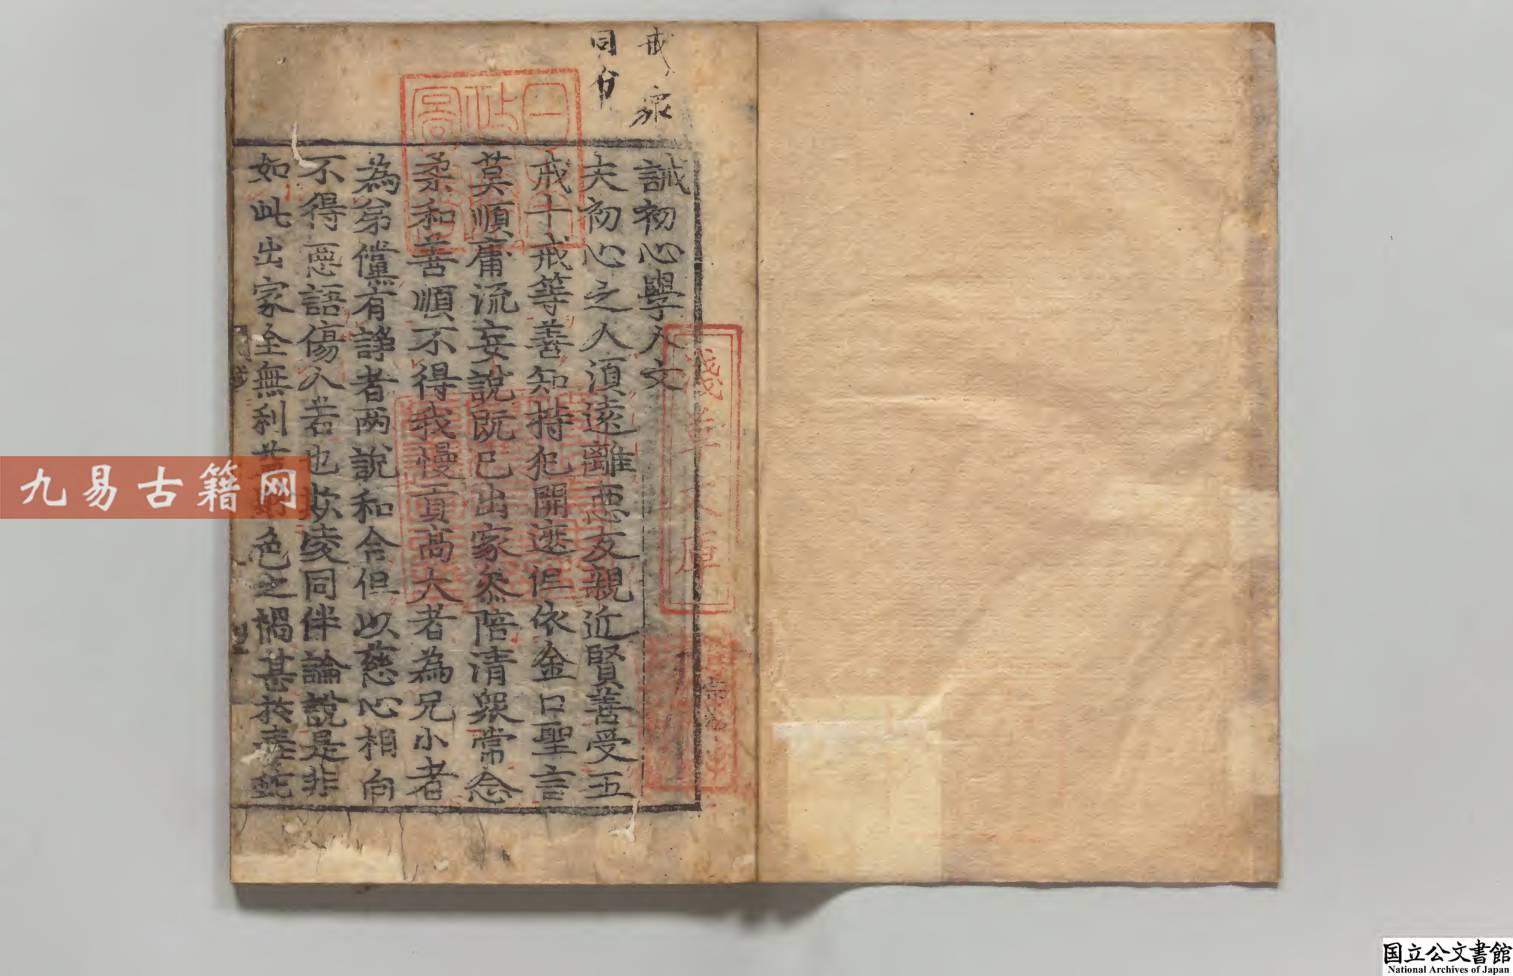 戒衆
同分
誡初心學人文
夫初心之人湏遠離惡友親近賢善受五
戒十戒等善知持犯開遮但依金口聖言
莫順庸流妄說既已出家叅陪清衆常念
柔和善順不得我慢貢高大者為兄小者
為弟儻有諍者兩說和合但以慈心相向
不得惡語傷人若也欺凌同伴論說是非
如此出家全無利益色之禍甚於毒蛇
淺草文庫
九易古籍网
国立公文書館
National Archives of Japan